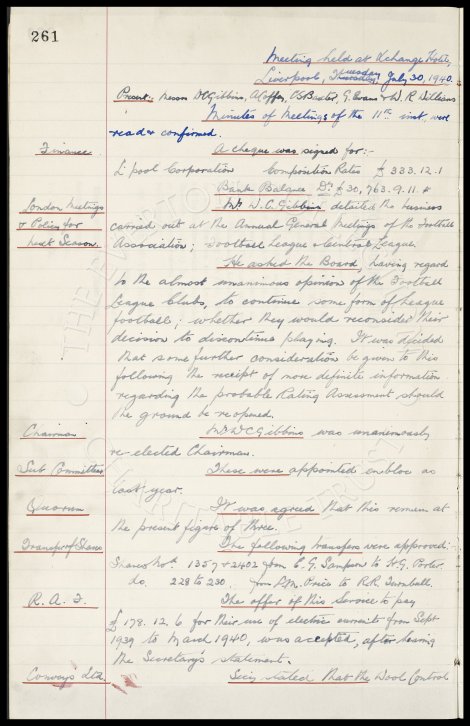 261
Meeting held at Xchange Hotel,
Liverpool, Tuesday July 30, 1940.
Present:- Messrs W.C. Gibbins, A. Coffey, G. Evans & W. R. Williams
Minutes of Meetings of the 11th inst. were
read & confirmed.
Finance A cheque was signed for:-
L'pool Corporation Composition Rates £333.12.1
Bank Balance Dr. £30,763.9.11.
London Meetings & Policy for next Season. Mr W.C. Gibbins, detailed the business
carried out at the Annual General Meetings of the Football
Association; Football League & Central League.
He asked the Board, having regard
to the almost unanimous opinion of the Football
League Clubs, to continue some form of League
football; whether they would reconsider their
decision to discontinue playing. It was decided
that some further consideration be given to this
following the receipt of more definite information
regarding the probable Rating Assessment should
the ground be re-opened.
Chairman Mr W C Gibbins was unanimously
re-elected Chairman.
Sub Committees These were appointed enbloc as
last year.
Quorum It was agreed that this remain at
the present figure of three.
Transfer of Shares The following transfers were approved:
Shares Nos. 1357 & 2402 from C. G. Sampson to H.G. Porter.
do. 228 to 230. from to R.R. Turnbull.
R. A. F. The offer of this Service to pay
£178.12.6 for their use of electric current from Sept
1939 to March 1940, was accepted, after hearing
the Secretary's statement.
Conveys Ltd. Secy stated that the Wool Control